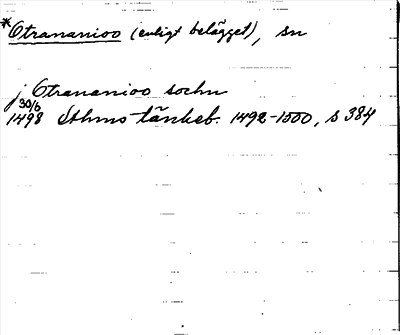 *Otrananioo (enligt belägget), sn
j Otrananioo sochn
30/6
1498 Sthms tänkeb. 1492-1500, s 384